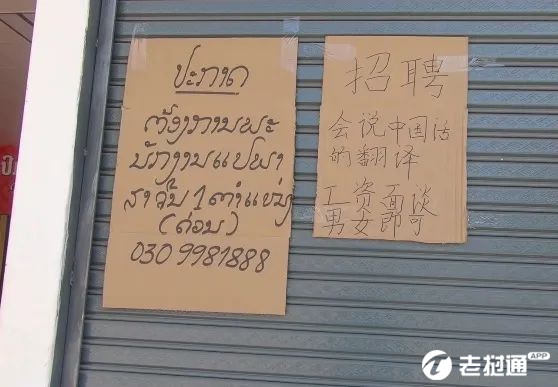 ປະກາດ
ຕ້ອງການພະ
ນັກງານແປພາ
ສາຈີນ 1 ຕຳແໜ່ງ
(ດ່ວນ)
030 9981888
招聘
会说中国话
的翻译
工资面谈
男女即可
老挝通 APP